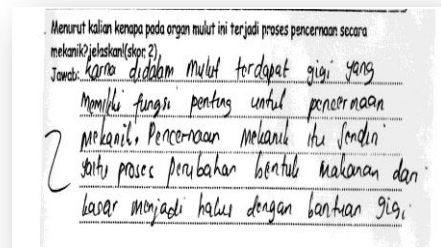 . Menurut kalian kenapa pada organ mulut ini terjadi proses pencernaan secara
mekanik? jelaskan!(skor 2)
Jawab: karna didalam mulut terdapat gigi yang
Memiliki fungsi penting untuk pencernaan
2 Mekanik. Pencernaan Mekanik itu Sendiri
yaitu proses perubahan bentuk makanan dari
kasar menjadi halus dengan bantuan gigi